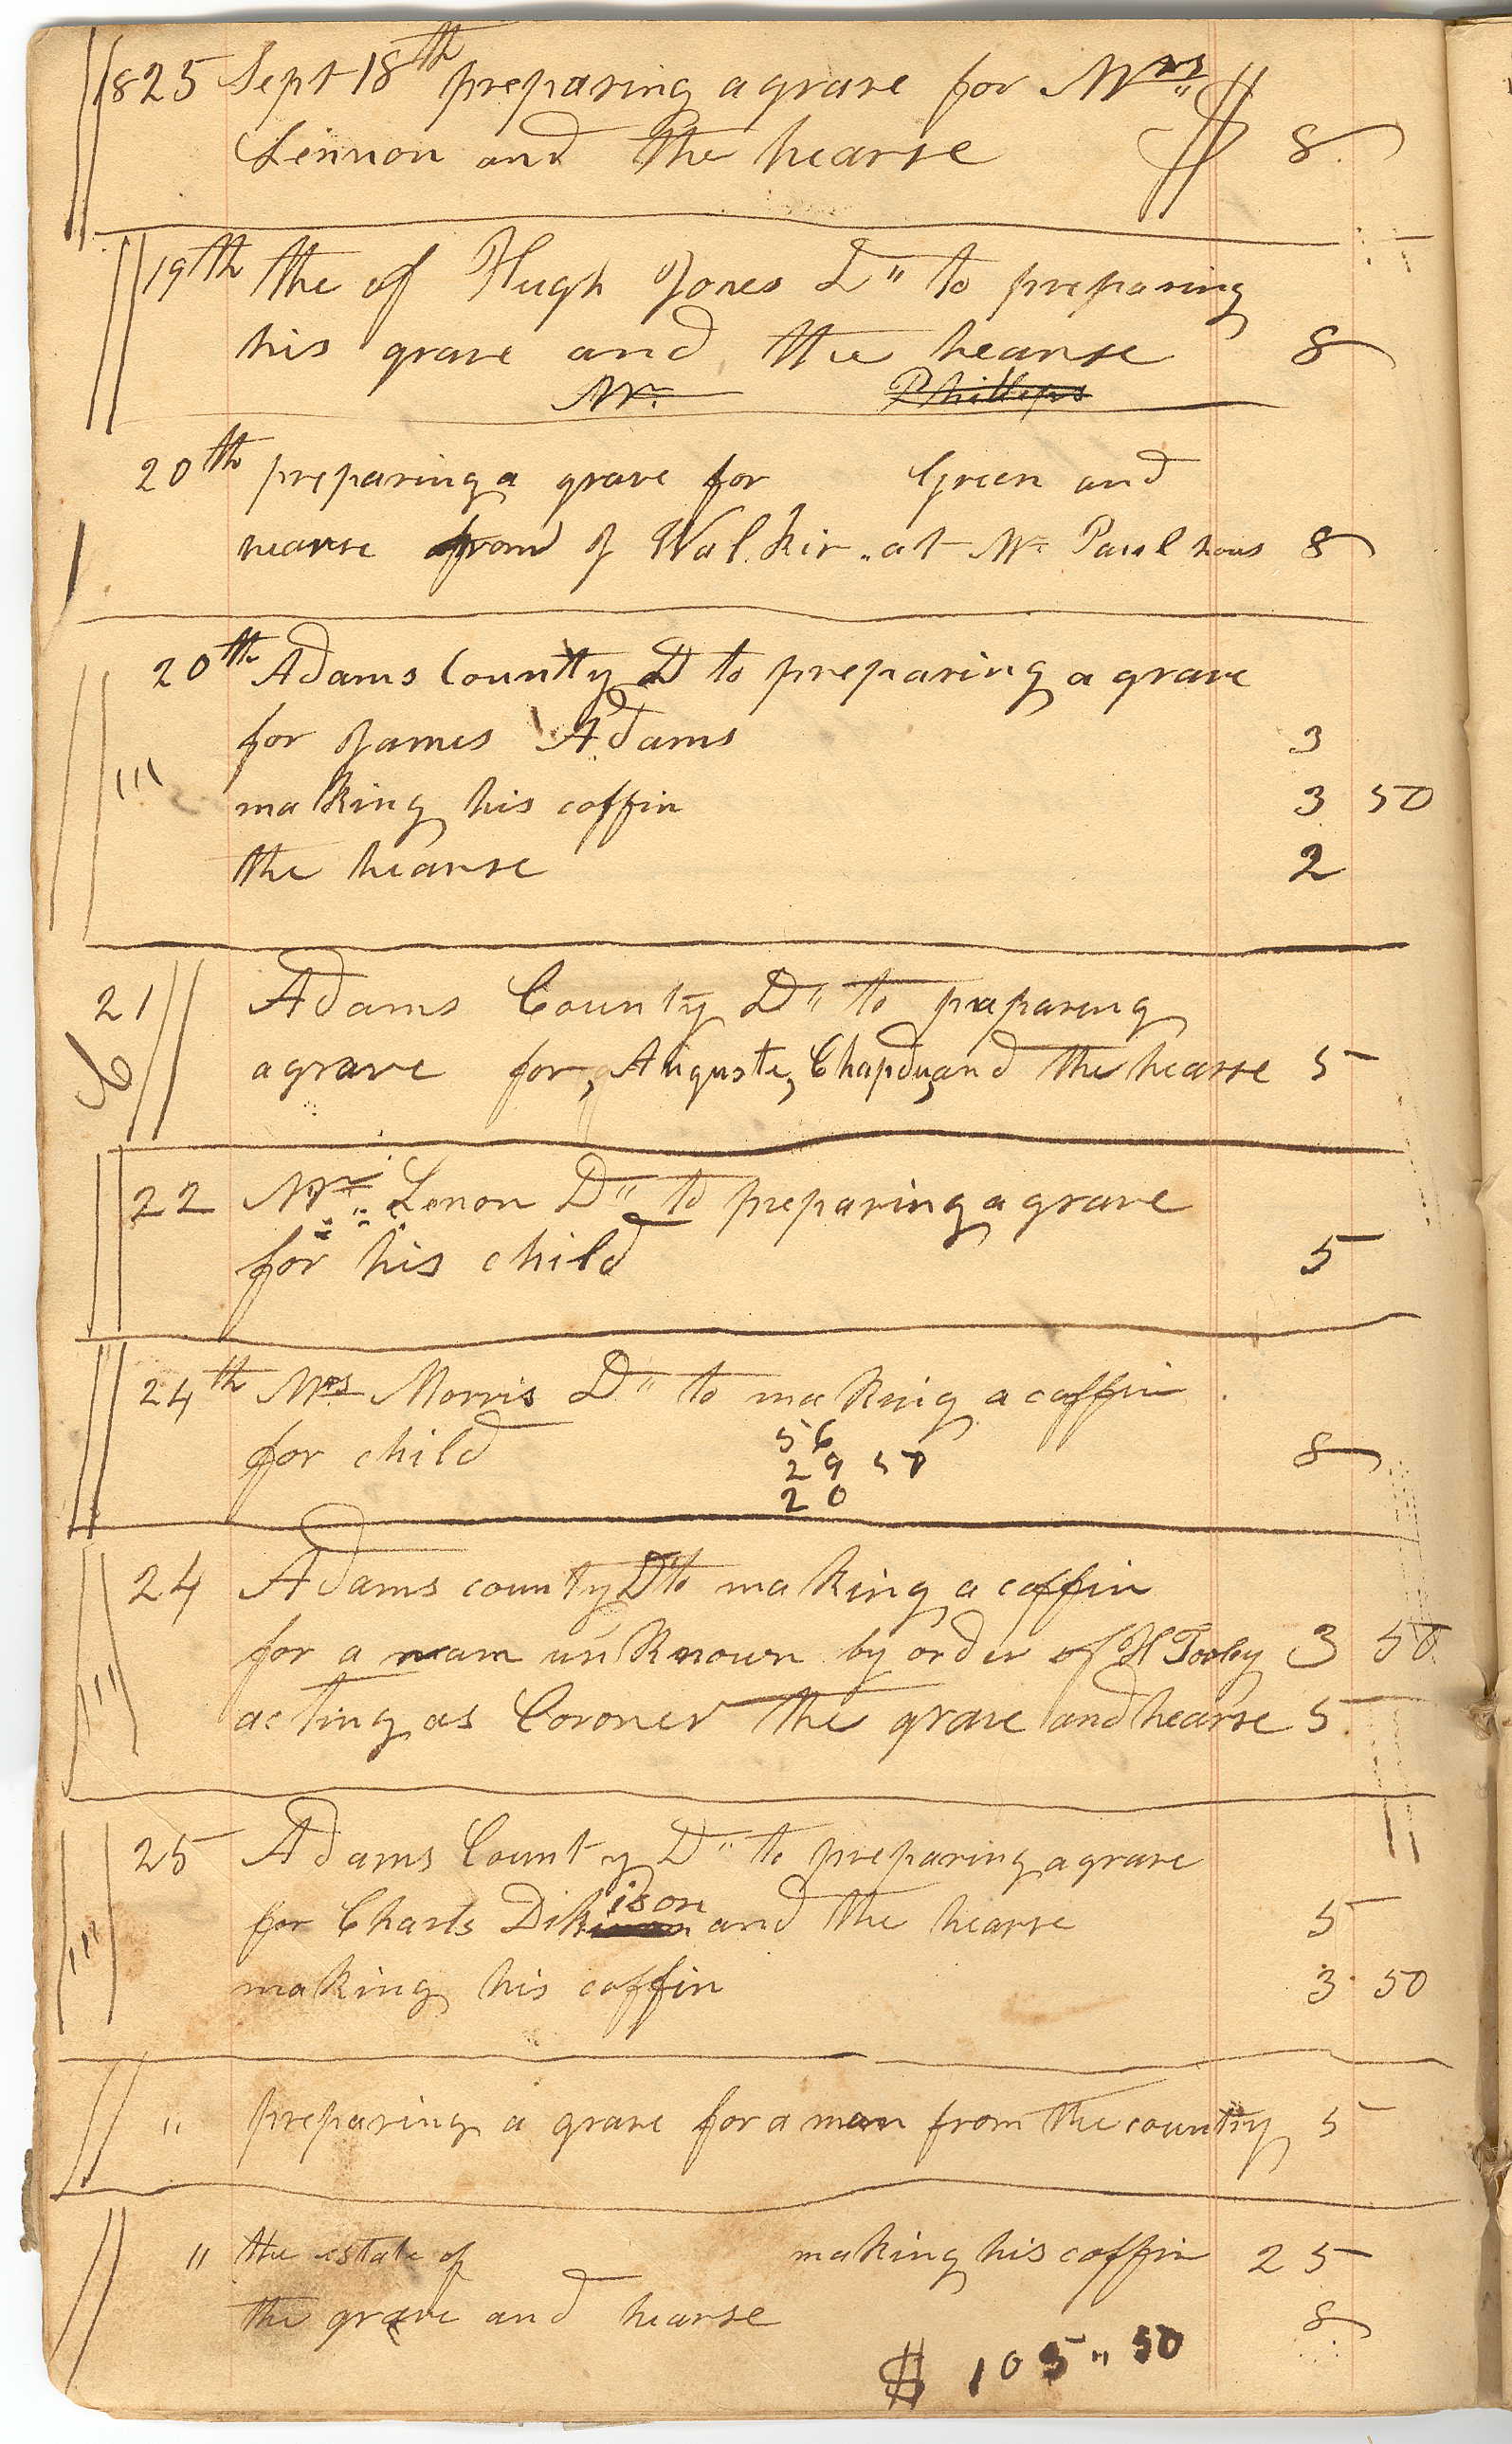 1825 Sept 18th preparing a grave for Mrs
Lennon and the hearse $ 8
19th the of Hugh Jones D" to preparing
his grave and the hearse 8
Mr. Phillips
20th preparing a grave for Green and
hearse from of Wal.kir at Mr Paulsons 8
20th Adams County D to preparing a grave
for James Adams 3
making his coffin 3 50
the hearse 2
21 Adams County D" to preparing
a grave for, Auguste, Chapdu, and the hearse 5
22 Mr Lenon D" to preparing a grave
for his child 5
24th Mrs Morris D" to making a coffin
for child 8
56
29 50
20
24 Adams county D to making a coffin
for a man unknown by order of H Tooley 3 50
acting as Coroner the grave and hearse 5
25 Adams County D" to preparing a grave
for Charls Dikison and the hearse 5
making his coffin 3 50
" preparing a grave for a man from the country 5
" the estate of making his coffin 25
the grave and hearse 8
$ 105" 50